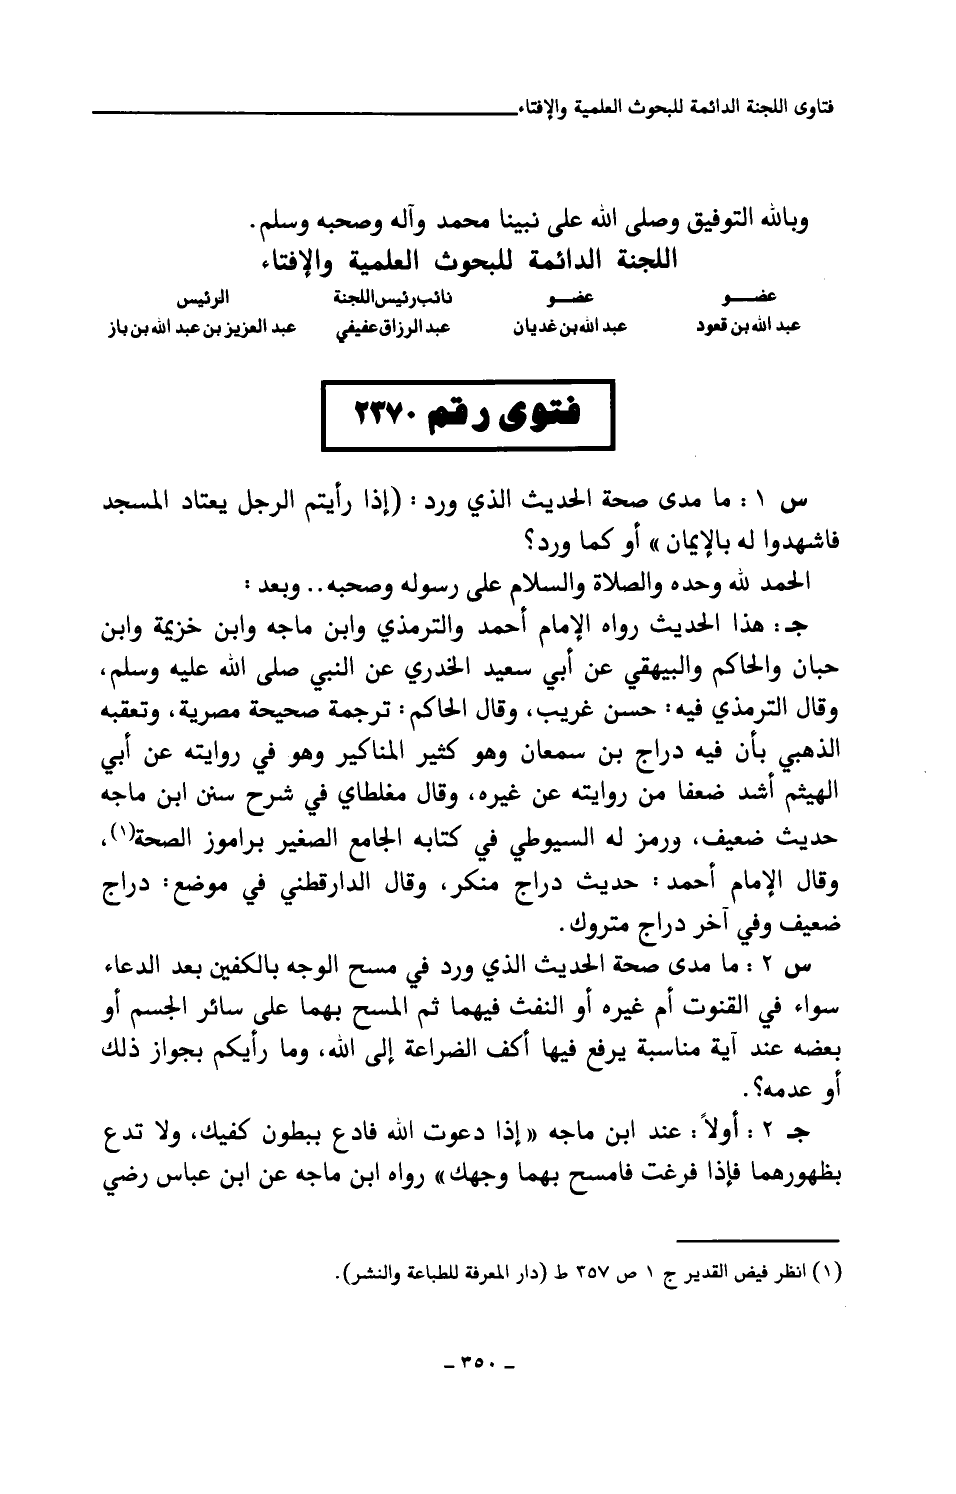 فتاوى اللجنة الدائمة للبحوث العلمية والإفتاء
وبالله التوفيق وصلى الله على نبينا محمد وآله وصحبه وسلم.
اللجنة الدائمة للبحوث العلمية والإفتاء
عضــو عضــو نائب رئيس اللجنة الرئيس
عبد الله بن قعود عبد الله بن غديان عبد الرزاق عفيفي عبد العزيز بن عبد الله بن باز
فتوى رقم ٢٣٧٠
س ١ : ما مدى صحة الحديث الذي ورد : (إذا رأيتم الرجل يعتاد المسجد
فاشهدوا له بالإيمان» أو كما ورد؟
الحمد لله وحده والصلاة والسلام على رسوله وصحبه.. وبعد :
جـ: هذا الحديث رواه الإمام أحمد والترمذي وابن ماجه وابن خزيمة وابن
حبان والحاكم والبيهقي عن أبي سعيد الخدري عن النبي صلى الله عليه وسلم،
وقال الترمذي فيه: حسن غريب، وقال الحاكم: ترجمة صحيحة مصرية، وتعقبه
الذهبي بأن فيه دراج بن سمعان وهو كثير المناكير وهو في روايته عن أبي
الهيثم أشد ضعفا من روايته عن غيره، وقال مغلطاي في شرح سنن ابن ماجه
حديث ضعيف، ورمز له السيوطي في كتابه الجامع الصغير براموز الصحة(١)،
وقال الإمام أحمد : حديث دراج منكر، وقال الدارقطني في موضع: دراج
ضعيف وفي آخر دراج متروك.
س ٢ : ما مدى صحة الحديث الذي ورد في مسح الوجه بالكفين بعد الدعاء
سواء في القنوت أم غيره أو النفث فيهما ثم المسح بهما على سائر الجسم أو
بعضه عند آية مناسبة يرفع فيها أكف الضراعة إلى الله، وما رأيكم بجواز ذلك
أو عدمه؟.
جـ ٢ : أولاً: عند ابن ماجه «إذا دعوت الله فادع ببطون كفيك، ولا تدع
بظهورهما فإذا فرغت فامسح بهما وجهك» رواه ابن ماجه عن ابن عباس رضي
(١) انظر فيض القدير ج ١ ص ٣٥٧ ط (دار المعرفة للطباعة والنشر).
ـ ٣٥٠ ـ